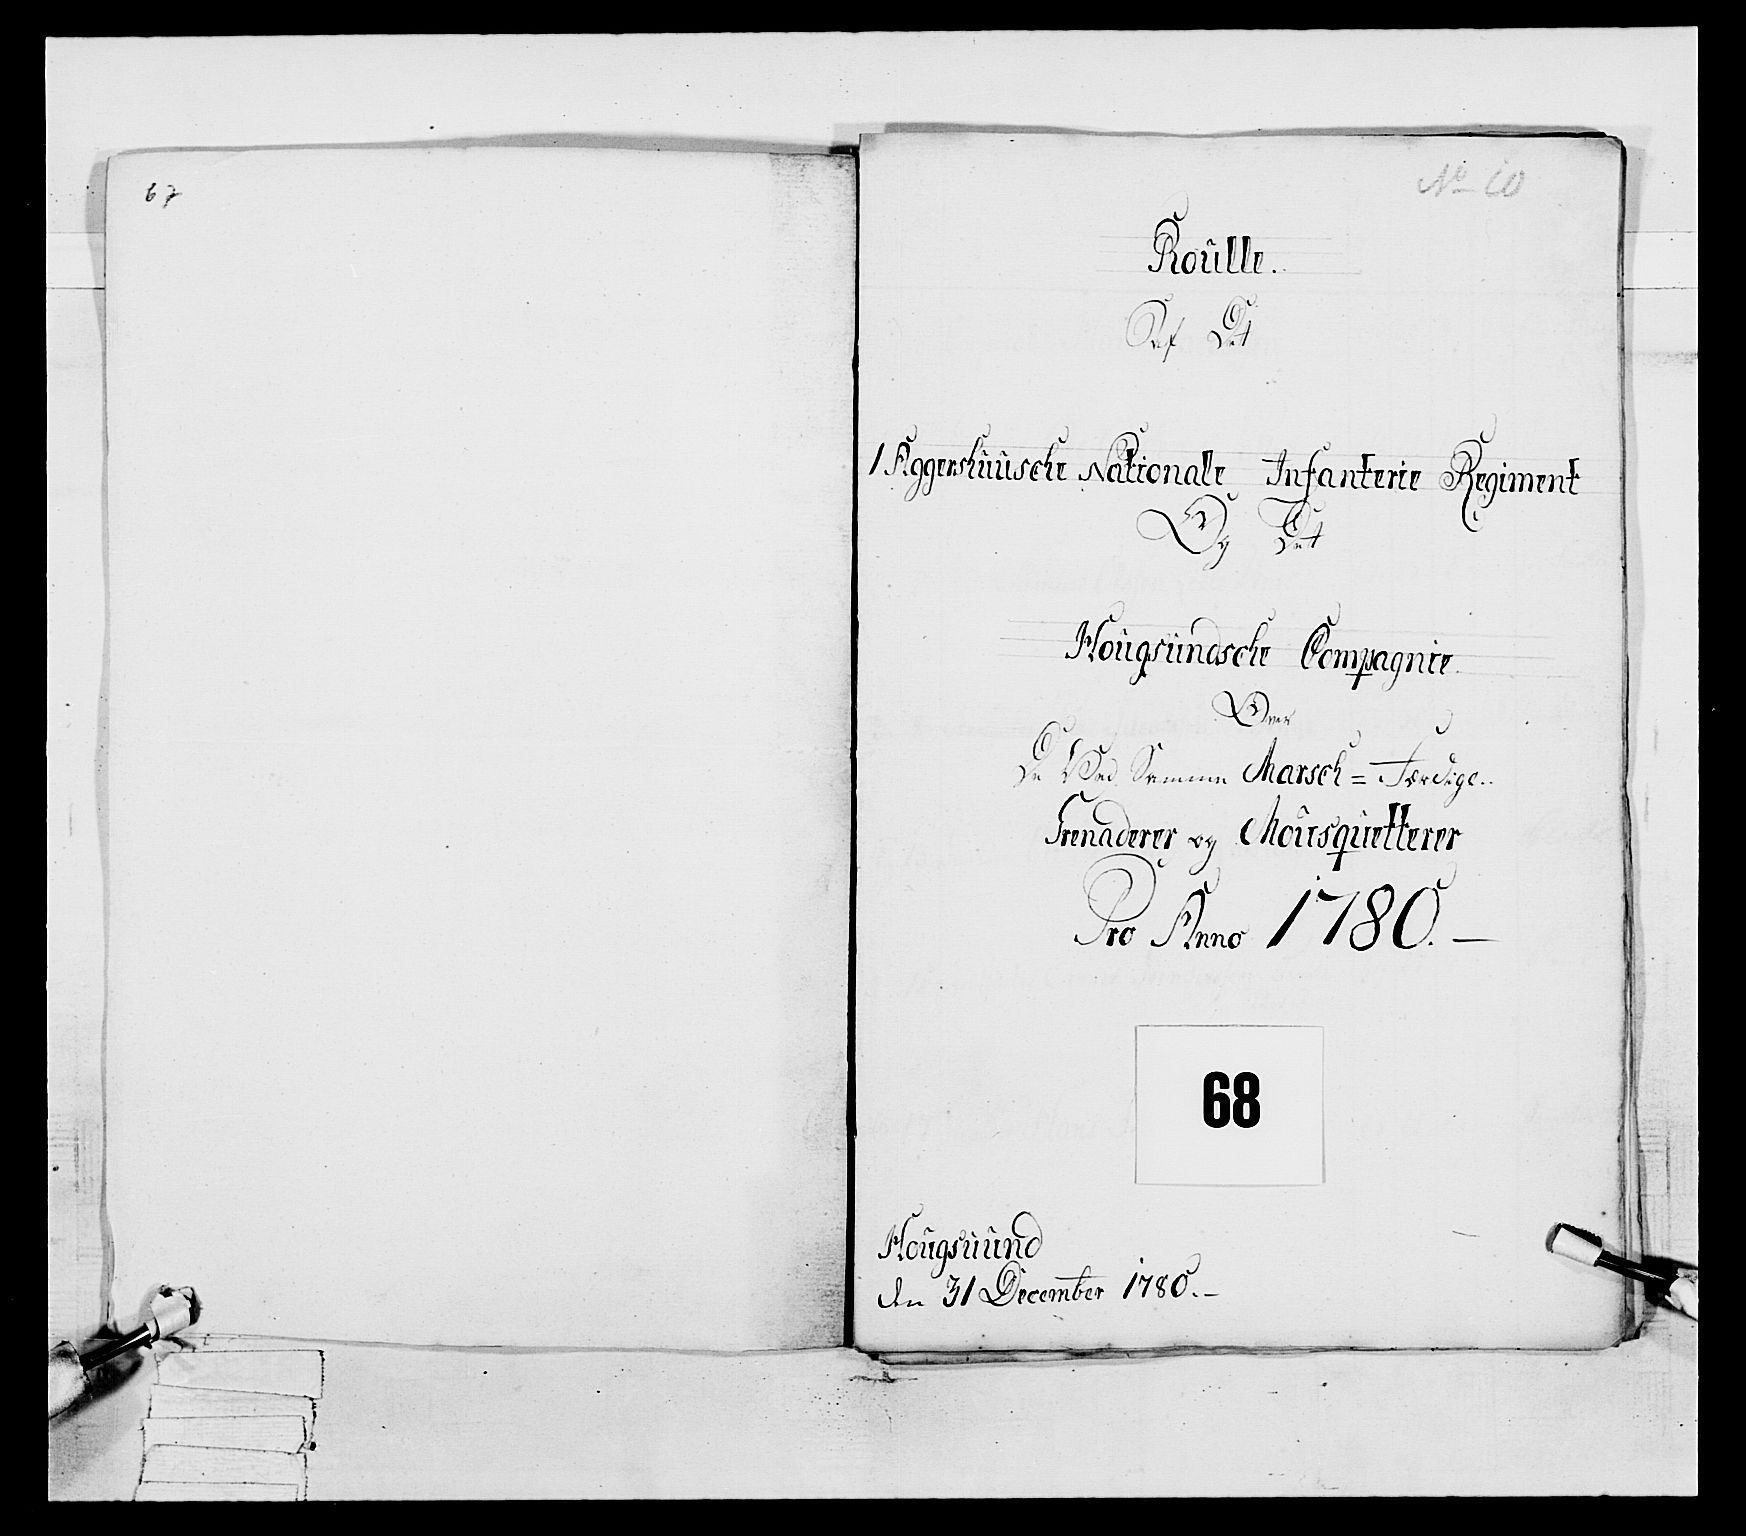 67
No 60
Roülle.
Af Det
1 Aggershüüsche Nationale Infanterie Regiment
Og Det
Hoügsündsche Compagnie
Over
De Ved Samme Marsch = Færdige..
Grenaderer og Moüsqüetterer
Pro Anno 1780. —
68
Hoügsüünd
den 31 December 1780. —